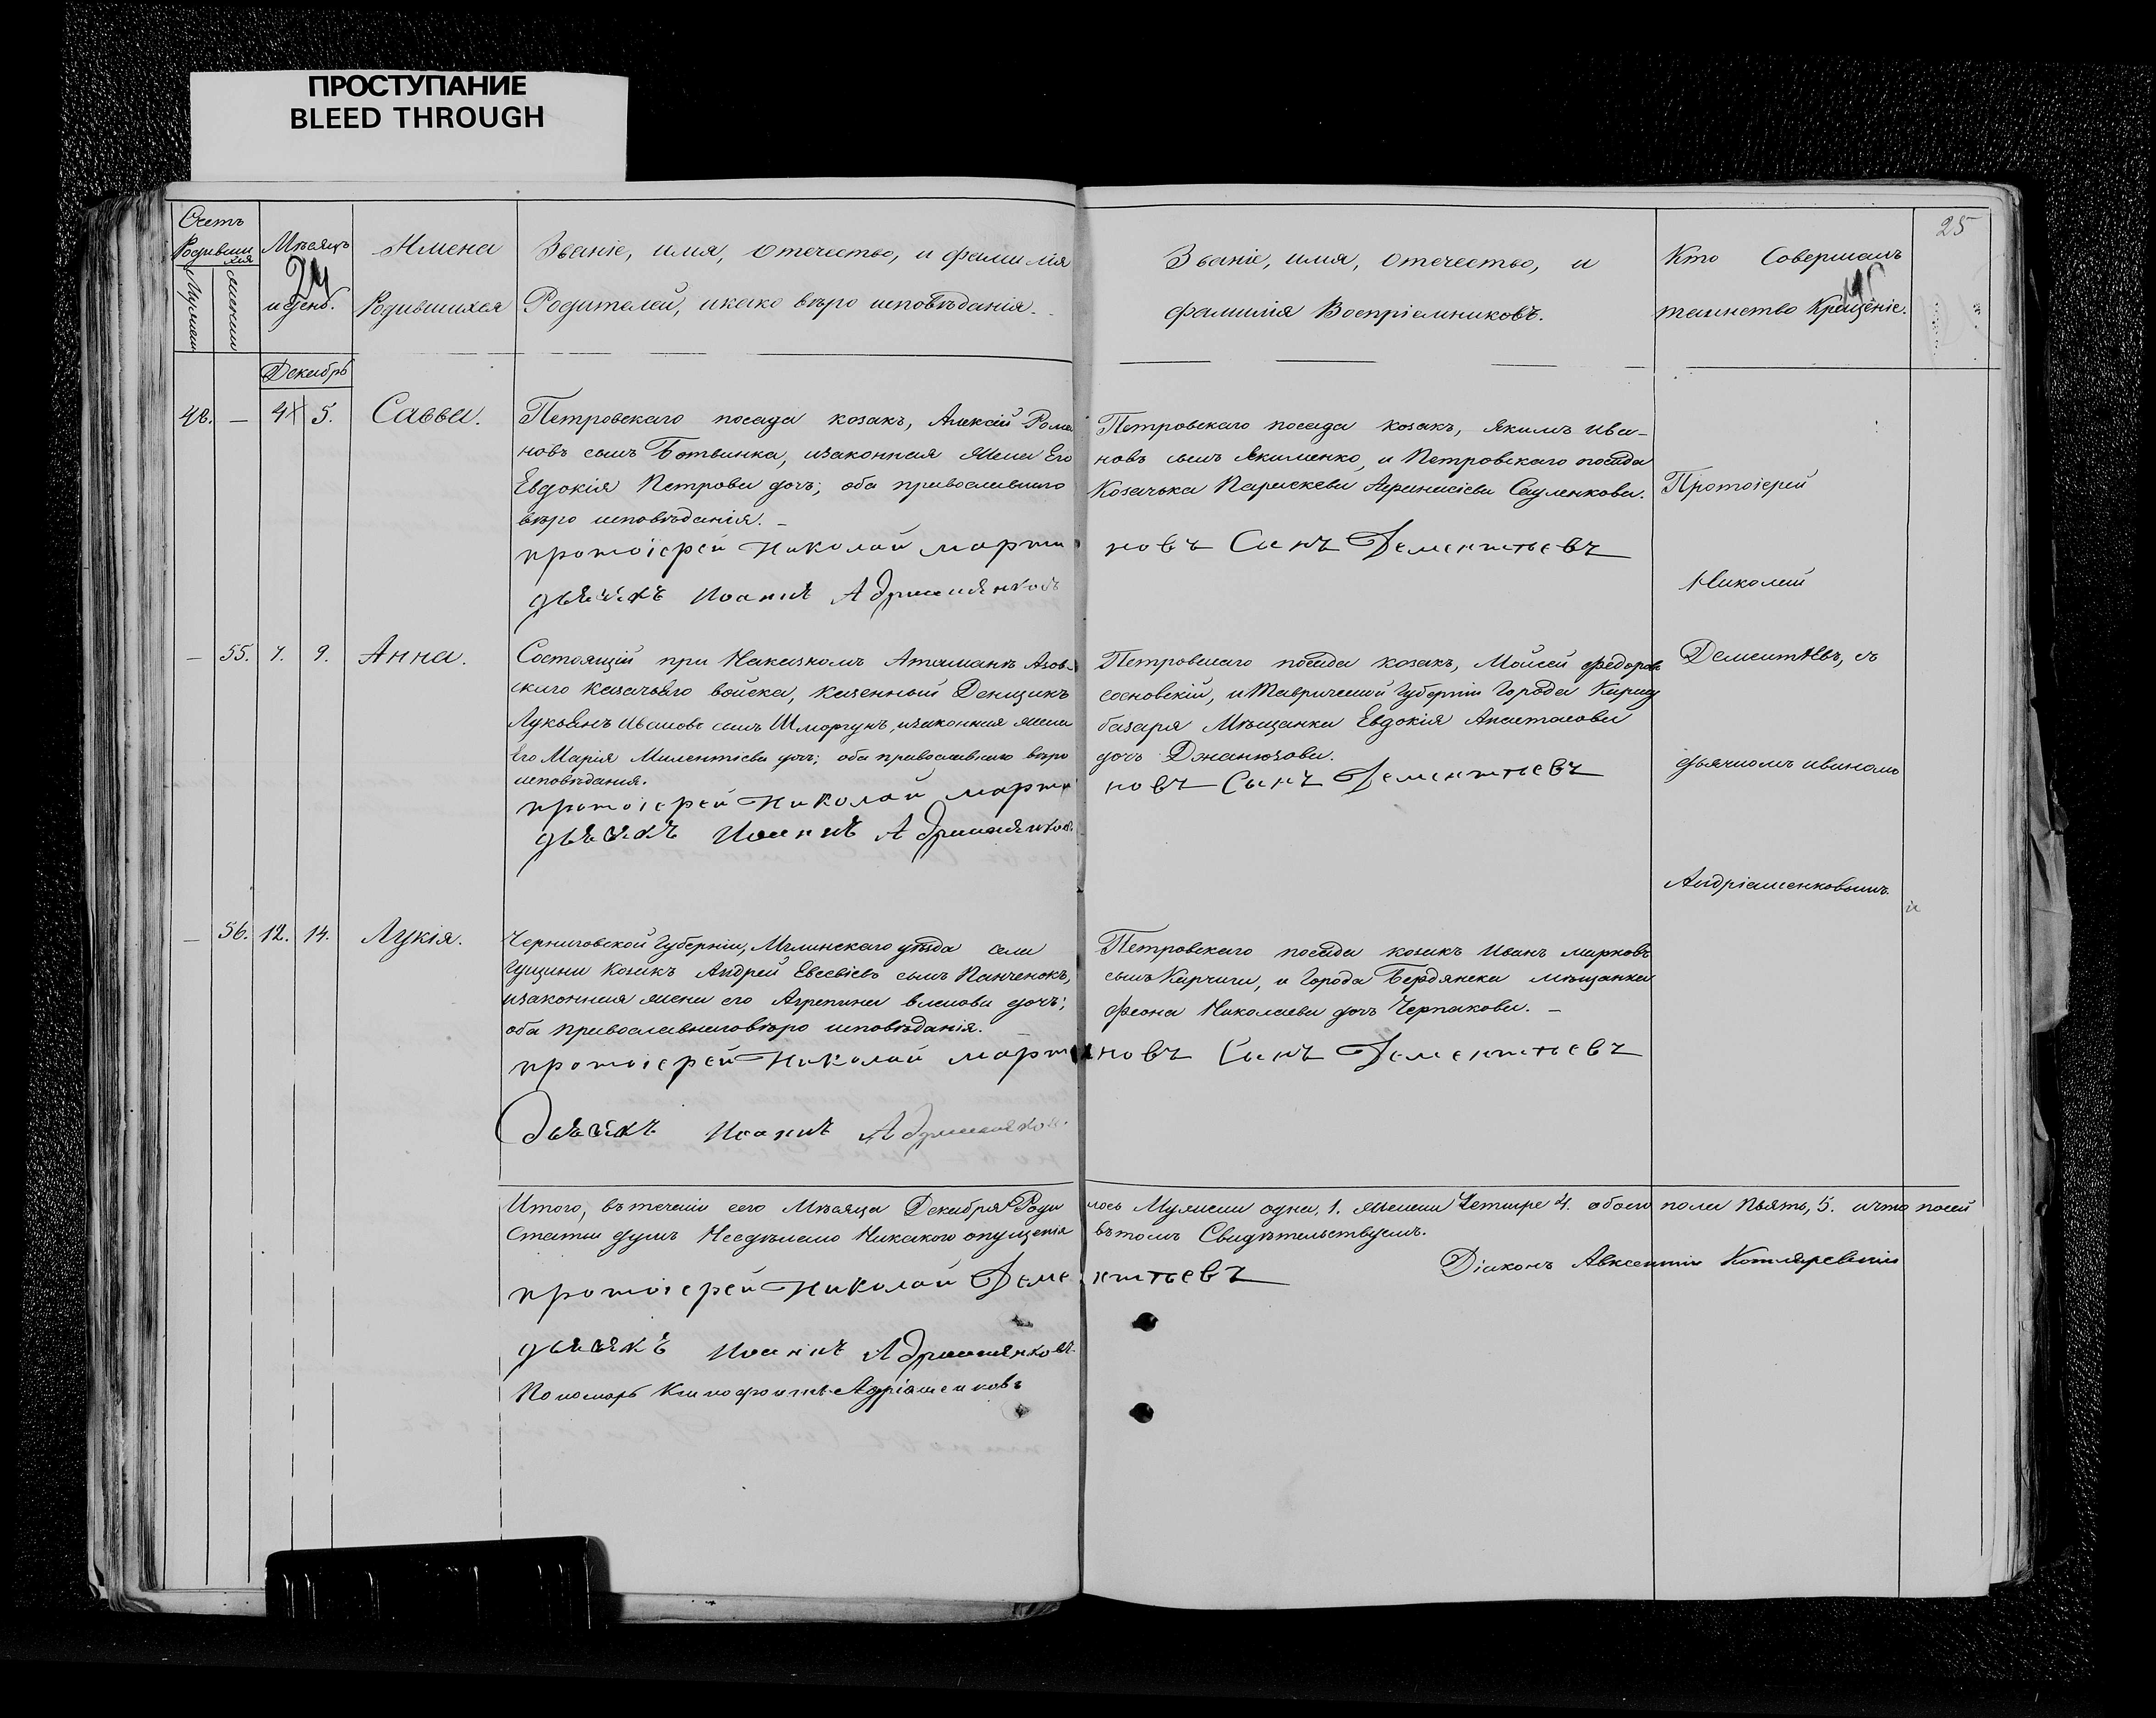 ПРОСТУПАНИЕ
BLEED THROUGH
25
Счетъ
Родивши
хся
Мужеска
женска
Мѣсяцъ
24
и день.
Имена
Родившихся
Званіе, имя, Отечество, и фамилія
Родителей, и како вѣро исповѣданія.
Званіе, имя, Отечество, и
фамилія Воспріемниковъ.
Кто Совершалъ
таинство Крещеніе.
Декабрь
48. — 4 5. Савва.
Петровскаго посада козакъ, Алексѣй Рома
новъ сынъ Ботвинка, изаконная жена Его
Евдокія Петрова дочь; оба православнаго
вѣро исповѣданія. —
протоіерей Николай марти
дьячекъ Иоаннъ
Петровскаго посада козакъ, Якимъ Ива-
новъ сынъ Якименко, и Петровскаго посада
Козачька Параскева Афанасіева Сауленкова.
новъ Сынъ Дементьевъ
Протоіерей
Николай
Дементьевъ, съ
дьячкомъ иваномъ
Андріашенковымъ.
— 55. 7. 9. Анна.
Состоящій при Наказномъ Атаманѣ Азов-
скаго казачьяго войска, казенный Денщикъ
Лукьянъ Ивановъ сынъ Шморгунъ, изаконная жена
Его Марія Милентіева дочь; оба православнаго вѣро
исповѣданія.
протоіерей Николай марти
дьячекъ Иоаннъ
Петровскаго посада козакъ, Моисей Федоровъ
сосновскій, и Таврической Губерніи Города Карасу
базара Мѣщанка Евдокія Анастасова
дочь Джанюзова.
новъ Сынъ Дементьевъ
— 56. 12. 14. Лукія.
Черниговской Губерніи, Мглинскаго уѣзда села
Гущина Козакъ Андрей Евсевіевъ сынъ Панченокъ,
изаконная жена его Агрепина власова дочь;
оба православнаго вѣро исповѣданія.
протоіерей Николай марти
Дьячекъ Иоаннъ
Петровскаго посада козакъ Иванъ марковъ
сынъ Карчага, и Города Бердянска мѣщанка
Феона Николаева дочь Черпакова. —
новъ Сынъ Дементьевъ
Итого, въ теченіи сего Мѣсяца Декабря Роди
лось Мужеска одна, 1. женска Четыре 4. обоего пола Пьять, 5. ичто посей
Статьи душъ Несдѣлано Никакого опущенія
въ томъ Свидѣтельствуемъ.
протоіерей Николай Деме
нтьевъ
Діаконъ Авксентій Котляревскій
дьячекъ Иоаннъ
Пономарь Андріашенковъ